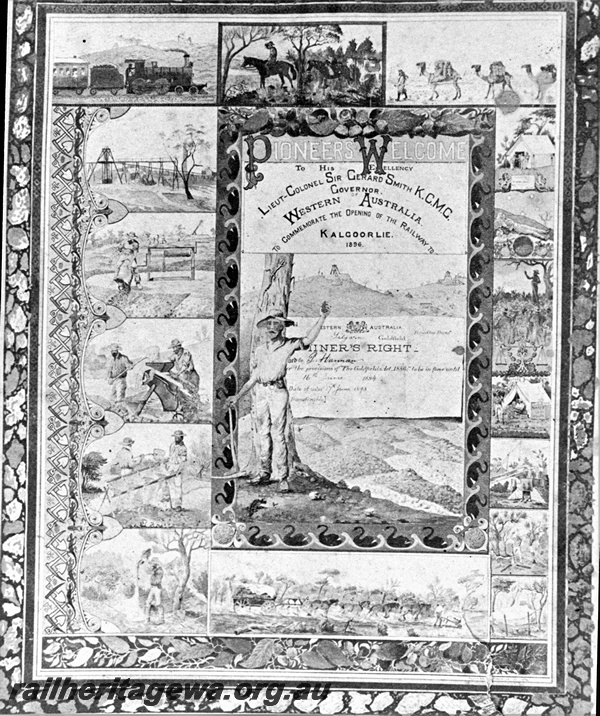 PIONEERS WELCOME
TO HIS EXCELLENCY
LIEUT-COLONEL SIR GERARD SMITH K.C.M.G.
GOVERNOR
OF
WESTERN AUSTRALIA,
TO COMMEMORATE THE OPENING OF THE RAILWAY TO
KALGOORLIE.
1896.
WESTERN AUSTRALIA
Goldfield
MINER'S RIGHT
Hannan
the provisions of "The Goldfields Act, 1886," to be in force until
1894
Date of issue
railheritagewa.org.au